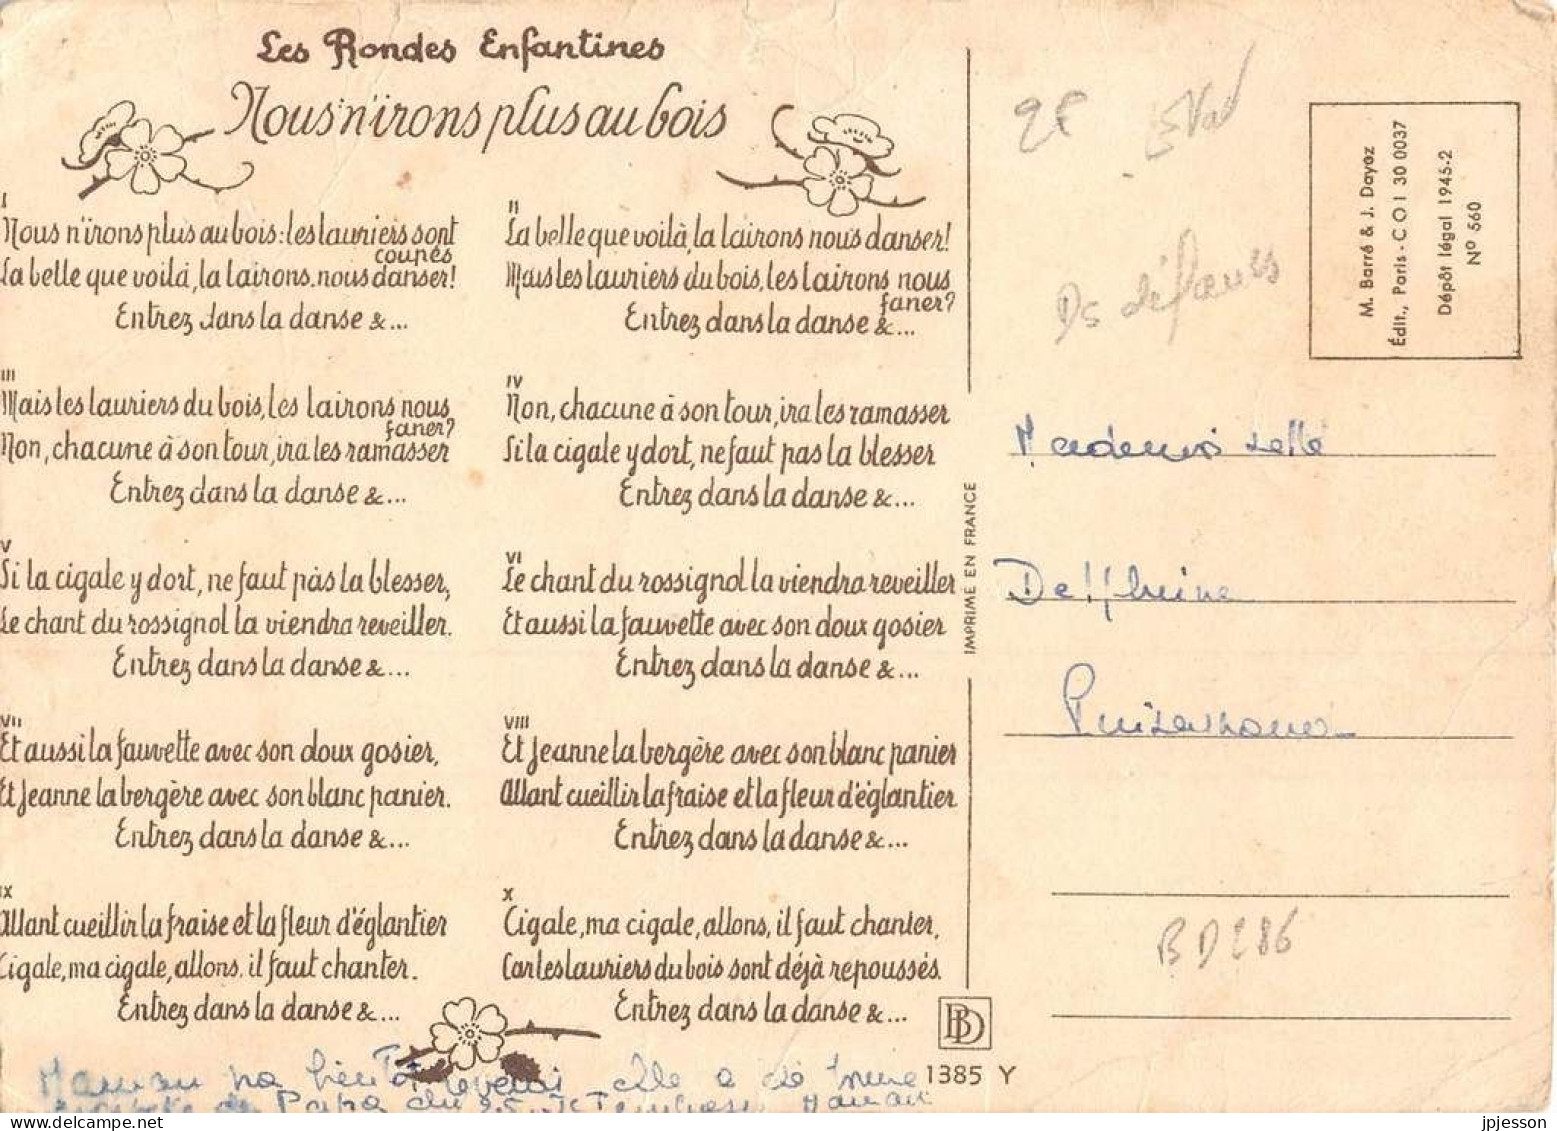 Les Rondes Enfantines
Nous n'irons plus au bois
I
Nous n'irons plus au bois: les lauriers sont
coupés
La belle que voilà, la lairons nous danser!
Entrez dans la danse &...
II
La belle que voilà, la lairons nous danser!
Mais les lauriers du bois, les lairons nous
faner?
Entrez dans la danse &...
III
Mais les lauriers du bois, les lairons nous
faner?
Non, chacune à son tour, ira les ramasser
Entrez dans la danse &...
IV
Non, chacune à son tour, ira les ramasser
Si la cigale y dort, ne faut pas la blesser
Entrez dans la danse &...
V
Si la cigale y dort, ne faut pas la blesser,
Le chant du rossignol la viendra reveiller.
Entrez dans la danse &...
VI
Le chant du rossignol la viendra reveiller
Et aussi la fauvette avec son doux gosier
Entrez dans la danse &...
VII
Et aussi la fauvette avec son doux gosier,
Et Jeanne la bergère avec son blanc panier.
Entrez dans la danse &...
VIII
Et Jeanne la bergère avec son blanc panier
Allant cueillir la fraise et la fleur d'églantier
Entrez dans la danse &...
IX
Allant cueillir la fraise et la fleur d'églantier
Cigale, ma cigale, allons, il faut chanter.
Entrez dans la danse &...
X
Cigale, ma cigale, allons, il faut chanter,
Car les lauriers du bois sont déjà repoussés.
Entrez dans la danse &...
Maman va bientôt revenir elle a été
de Papa du 25 Maman
IMPRIME EN FRANCE
BD
1385 Y
2€
Ds défauts
M. Barré & J. Dayez
Édit., Paris - C O I 30 0037
Dépôt légal 1945-2
N° 560
Mademoiselle
Delphine
BD286
jpjesson